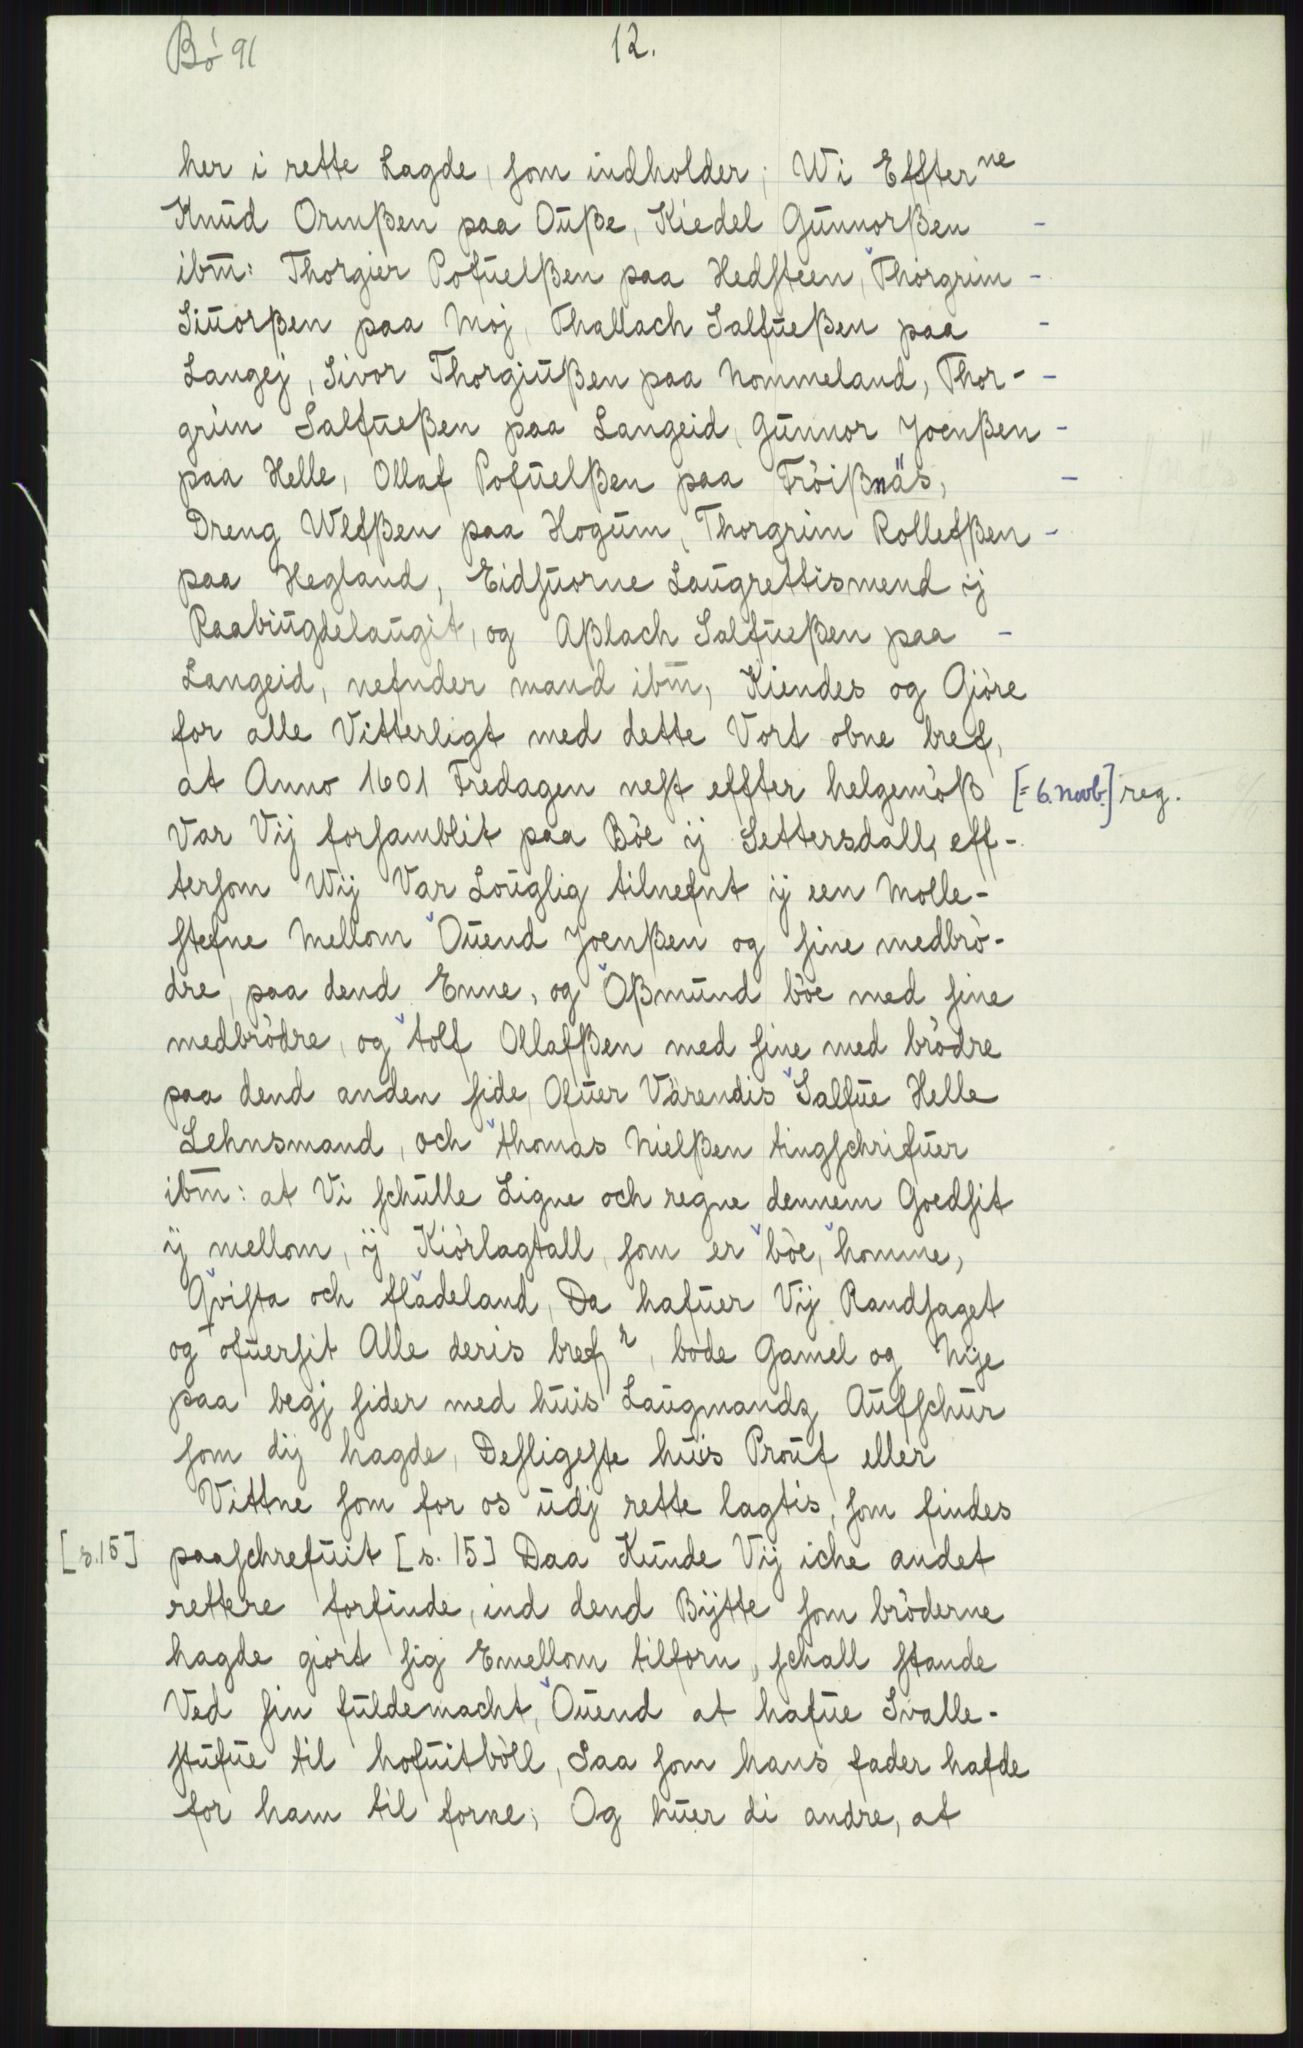 Bó 91
12.
her i rette Lagde, som indholder; Wi Effter ne
Knud Ormßen paa Oußе, Kiedel Gunnorßen -
ibm̄: Thorgier Pofuelßen paa Hedsteen, Thorgrim -
Siuorßen paa Moj, Thallach Salfueßen paa -
Langej, Sivor Thorgiußen paa Nommeland, Thor- -
grim Salfueßen paa Langeid, Gunnor Joenßen -
paa Helle, Ollaf Pofuelßen paa Fròißnäs, -
Dreng Wlfßen paa Hogum, Thorgrim Rollefßen -
paa Hegland, Eidsuorne Laugrettismend ij
Raabiugdelaugit, og Aßlach Salfueßen paa -
Langeid, nefnder mand ibm̄, Kiendes og Giòre
for alle Vitterligt med dette Vort obne bref,
at Anno 1601 Fredagen nest effter helgemòß [= 6. novb.] reg.
Var Vij forsamblit paa Bòe ij Settersdall, eff-
tersom Wij Var Louglig tilnefnt ij een Molle-
stefne Mellom Ouend Joenßen og sine medbrò-
dre, paa dend Enne, og Oßmund bòe med sine
medbròdre, og tolf Ollafßen med sine med bròdre
paa dend anden side, Ofuer Värendis Salfue Helle
Lehnsmand, och thomas Nielßen tingschrifuer
ibm̄: at Vi schulle Ligne och regne dennem Goedsit
ij mellom, ij Kiòrlagtall, som er bòe, homme,
Qvista och fladeland, Da hafuer Vij Randsaget
og ofuersit Alle deris bref r, bode Gamel og Nije
paa begj sider med huis Laugmandz Aufschur
som dij hagde, Desligeste huis Prouf eller
Vittne som for os udj rette lagtis, som findes
[s.15] paaschrefuit [s. 15] Daa Kunde Vij iche andet
rettere forfinde, ind dend Bijtte som bròderne
hagde giort sig Emellom tilforn, schall stande
Ved sin fuldemacht, Ouend at hafue Svalle-
stufue til hofuitbòll, Saa som hans fader hafde
for ham til forne; Og huer di andre, at